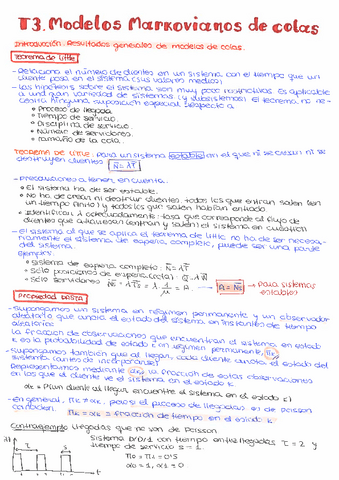 T3. Modelos Markovianos de colas
Introducción. Resultados generales de modelos de colas.
Teorema de Little
- Relaciona el número de clientes en un sistema con el tiempo que un
cliente pasa en el sistema (sus valores medios)
- Las hipótesis sobre el sistema son muy poco restrictivas. Es aplicable
a una gran variedad de sistemas (y subsistemas). El teorema no ne-
cesita ninguna suposición especial respecto a
• Proceso de llegada
• Tiempo de servicio
• Disciplina de servicio
• Número de servidores
• Tamaño de la cola
TEOREMA DE LITTLE: para un sistema estable en el que ni se crean ni se
destruyen clientes N̄ = λT̄
- Precauciones a tener en cuenta.
• El sistema ha de ser estable.
• No ha de crear ni destruir clientes: todos los que entran salen (en
un tiempo finito) y todos los que salen habían entrado.
• Identificar λ adecuadamente: tasa que corresponde al flujo de
clientes que atraviesan (entran y salen) el sistema en cuestión
- El sistema al que se aplica el teorema de Little no ha de ser necesa-
riamente el sistema de espera completo, puede ser una parte
del sistema.
Ejemplo:
• Sistema de espera completo: N̄ = λT̄
• Sólo posiciones de espera (cola):
• Sólo servidores A = N̄s → para sistemas
estables
Propiedad PASTA
- Supongamos un sistema en régimen permanente y un observador
abstracto que anota el estado del sistema en instantes de tiempo
aleatorios
la fracción de observaciones que encuentran el sistema en estado
k es la probabilidad de estado k en régimen permanente, πk
- Supongamos también que al llegar, cada cliente anota el estado del
sistema (antes de incorporarse)
Representamos mediante αk la fracción de estas observaciones
en los que el cliente ve el sistema en el estado k
αk = P(un cliente al llegar encuentre el sistema en el estado k)
- En general, πk ≠ αk, pero si el proceso de llegadas es de Poisson
coinciden. πk = αk = fracción de tiempo en el estado k
Contraejemplo: llegadas que no son de Poisson
Sistema D/D/1 con tiempo entre llegadas τ = 2 y
tiempo de servicio s = 1.
π0 = π1 = 0'5
α0 = 1, α1 = 0